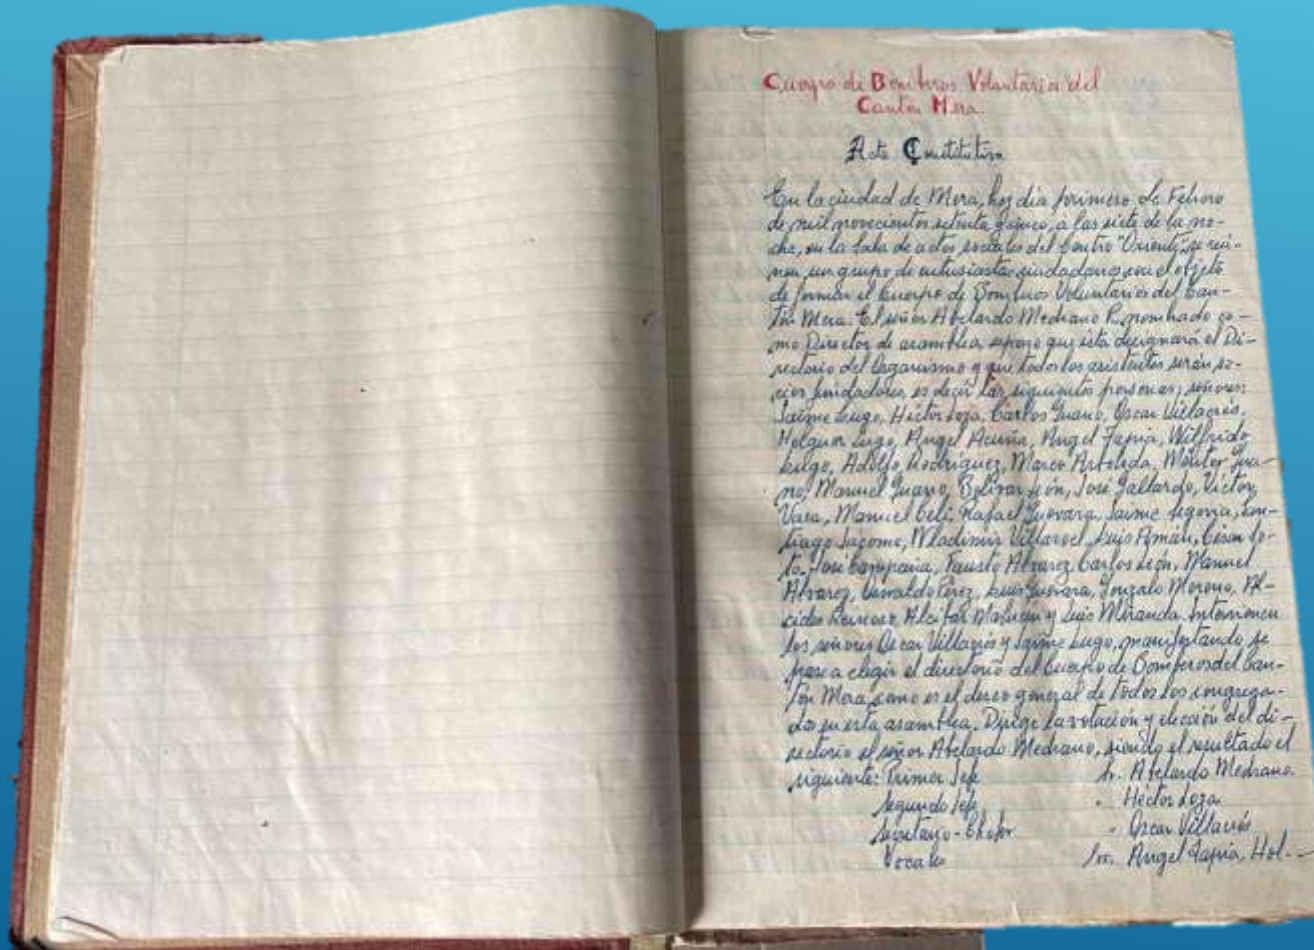 Cuerpo de Bomberos Voluntarios del
Cantón Mera.
Acta Constitutiva
En la ciudad de Mera, hoy día primero de Febrero
de mil novecientos setenta y cinco, a las siete de la no-
che, en la Sala de actos sociales del Centro "Oriente", se reú-
nen, un grupo de entusiastas ciudadanos con el objeto
de formar el Cuerpo de Bomberos Voluntarios del Can-
tón Mera. El señor Abelardo Medrano R. nombrado co-
mo Director de asamblea, expuso que ésta designará el Di-
rectorio del Organismo y que todos los asistentes serán so-
cios fundadores, es decir las siguientes personas; señores:
Jaime Lugo, Héctor Loza, Carlos Guano, Oscar Villacrés,
Holguer Lugo, Angel Acuña, Angel Tapia, Wilfrido
Lugo, Adolfo Rodríguez, Marco Arboleda, Méntor Gua-
no, Manuel Guano, Bolívar León, José Gallardo, Víctor
Vaca, Manuel Celi, Rafael Guevara, Jaime Segovia, San-
tiago Jácome, Wladimir Villaroel, Luis Amán, César So-
to, José Campaña, Fausto Alvarez, Carlos León, Manuel
Alvarez, Oswaldo Pérez, Luis Guevara, Gonzalo Moreno, Al-
cides Reinoso, Alcibar y Luis Miranda. Intervienen
los señores Oscar Villacrés y Jaime Lugo, manifestando se
pase a elegir el directorio del Cuerpo de Bomberos del Can-
tón Mera, como es el deseo general de todos los congrega-
dos en esta asamblea. Dirige la votación y elección del di-
rectorio el señor Abelardo Medrano, siendo el resultado el
siguiente: Primer Jefe Sr. Abelardo Medrano.
Segundo Jefe " Héctor Loza
Secretario-Chofer " Oscar Villacrés
Vocales Srs. Angel Tapia, Hol-